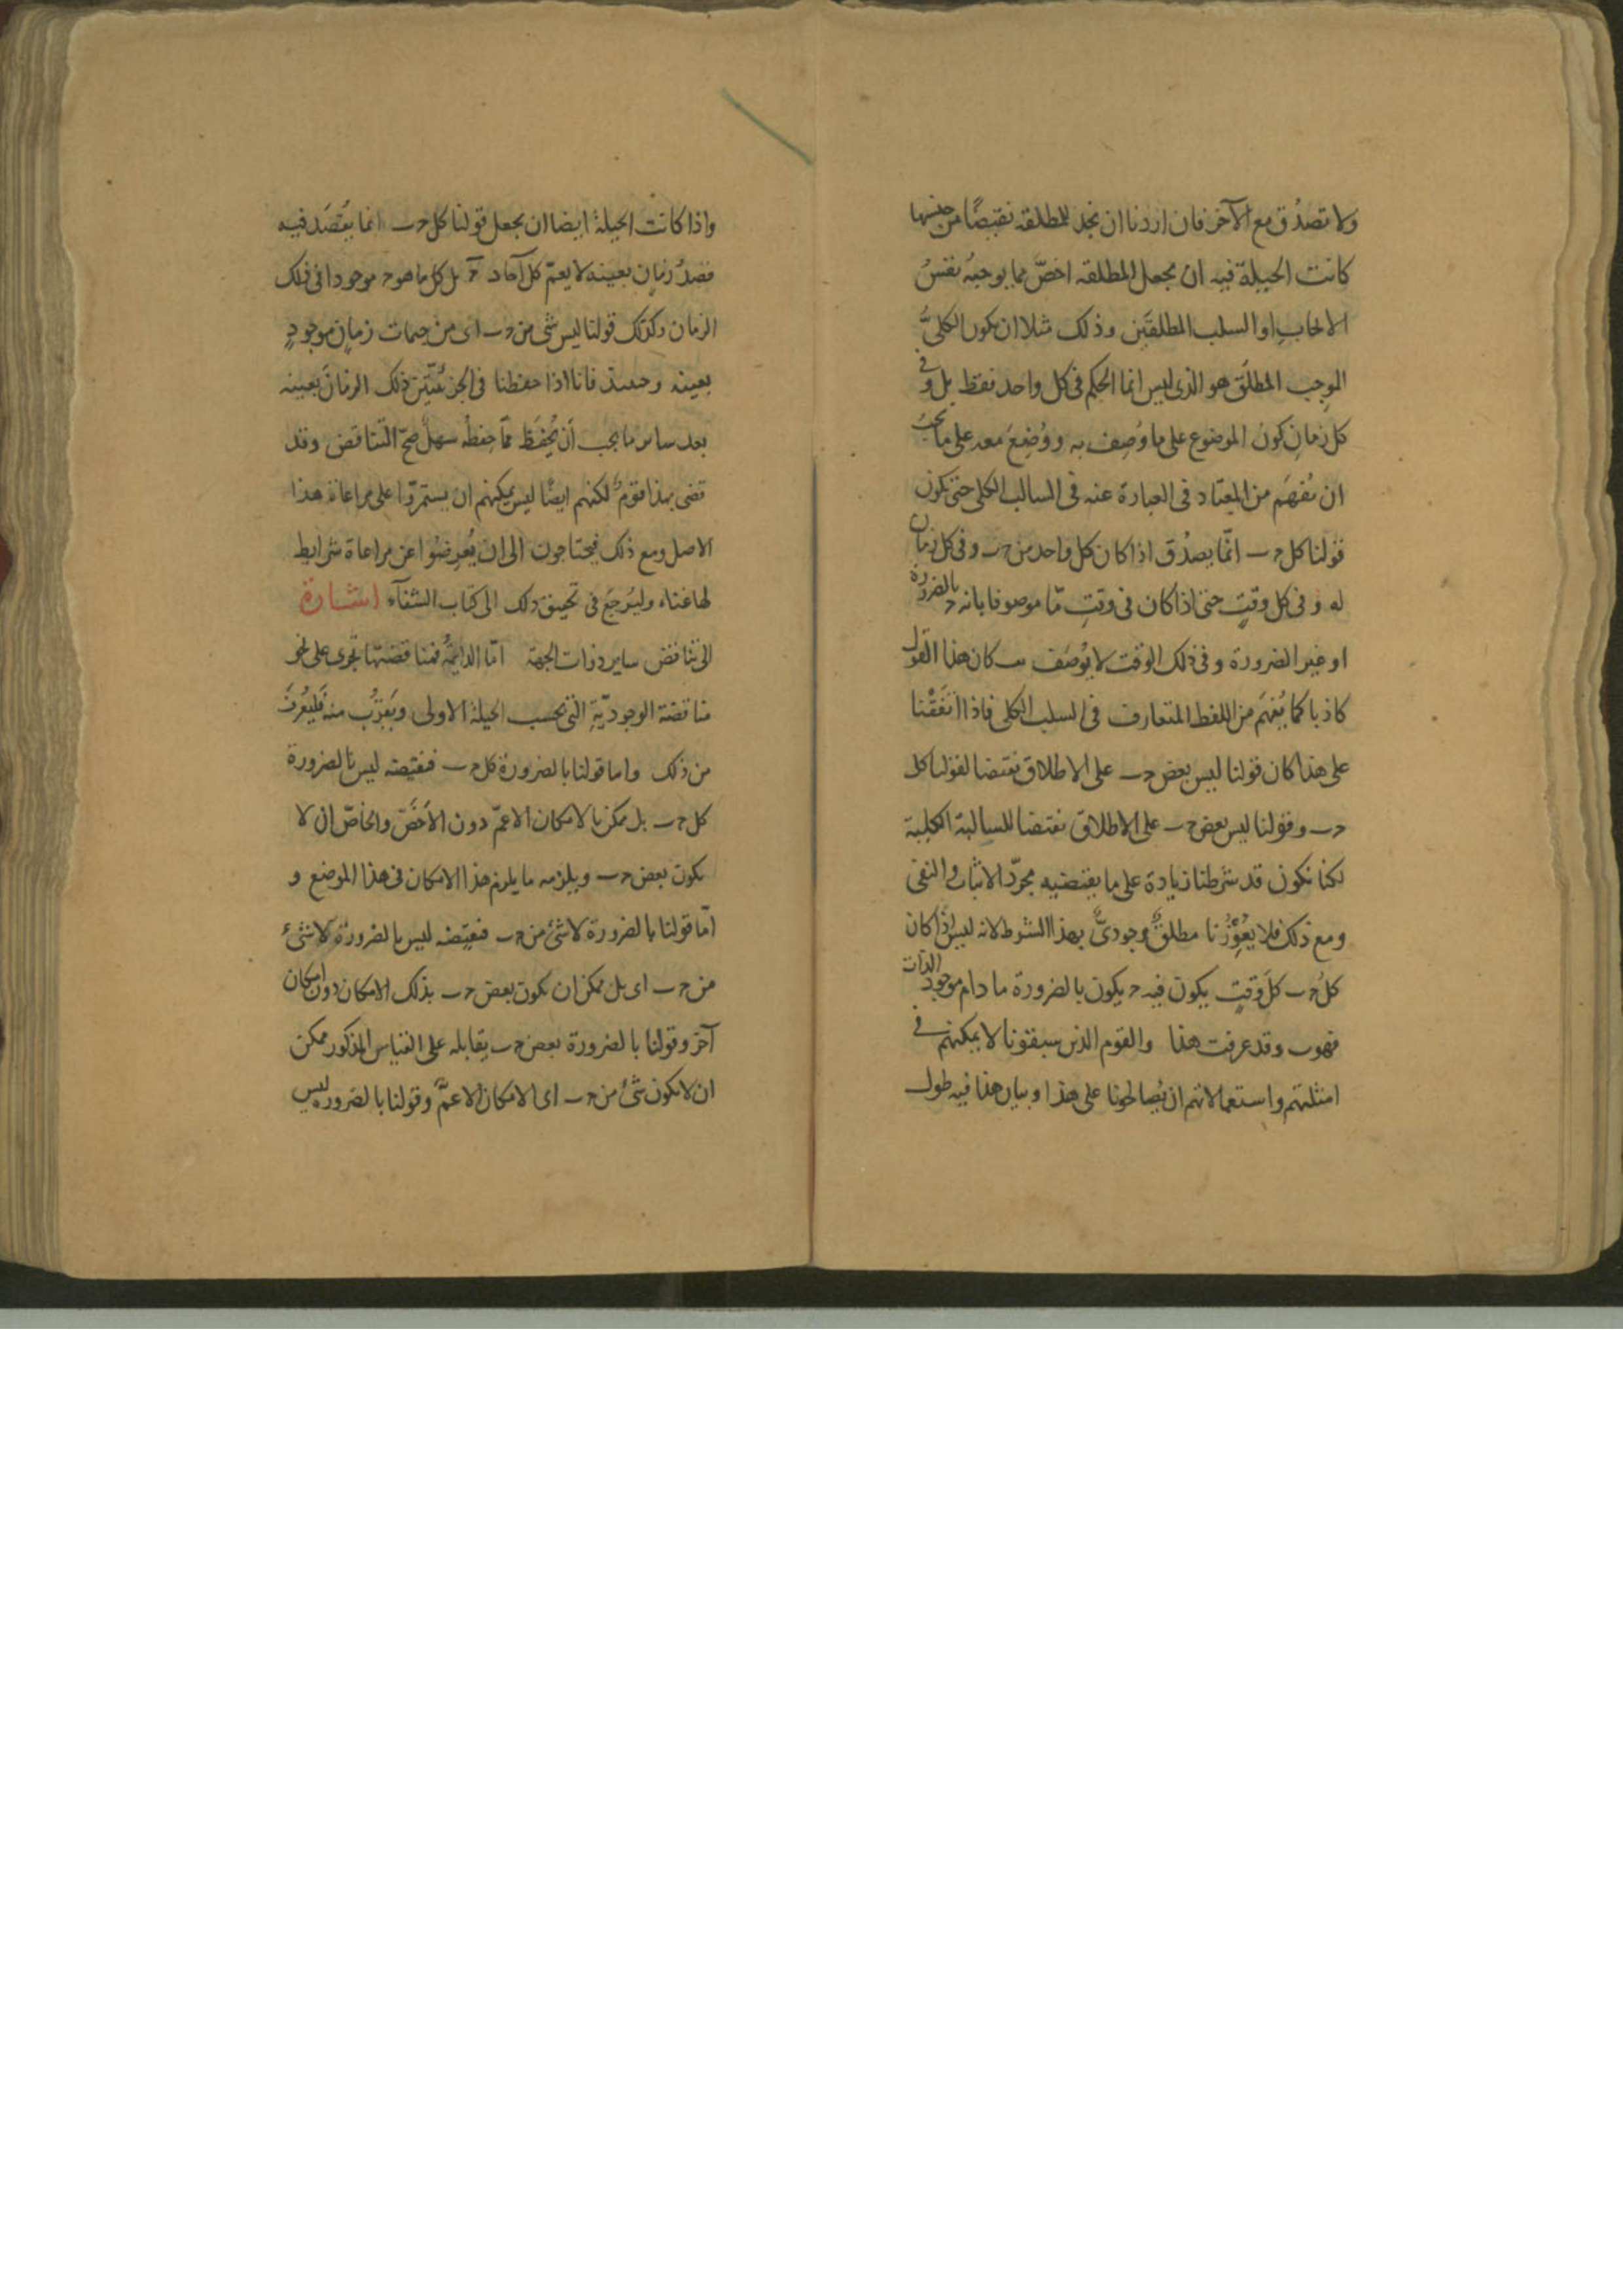 ولا تصدُق مع الآخر فان اردنا ان نجد للمطلقه نقيضًا من جنسها
كانت الحيلة فيه ان نجعل المطلقه اخصّ مما يوجبه نفسُ
الايجاب او السلب المطلقَين وذلك مثلا ان يكون الكليُّ
الموجِب المطلَق هو الذى ليس انما الحكم فى كل واحد فقط بل و فى
كل زمانِ كون الموضوع على ما وُصِف به ووُضِعَ معه على ما يجبُ
ان يُفهَم من المعتاد فى العبارة عنه فى السالب الكلى حتى يكون
قولنا كل حـ ب انّما يصدُق اذا كان كل واحد من حـ ب وفى كل زمان
له وفى كل وقتٍ حتى اذا كان فى وقتٍ مّا موصوفا بانه حـ بالضرورة
او غير الضرورة وفى ذلك الوقت لا يُوصَف بـ كان هذا القول
كاذبا كما يُفهَم من اللفظ المتعارف فى السلب الكلى فاذا اتفَقْنا
على هذا كان قولنا ليس بعض حـ ب على الاطلاق نقيضا لقولنا كل
حـ ب وقولنا ليس بعض حـ ب على الاطلاق نقيضا للسالبة الكلية
لكنا نكون قد شرطنا زيادة على ما يقتضيه مجرّد الاثبات والنفى
ومع ذلك فلا يُعوِزُنا مطلقٌ وجودىٌّ بهذا الشرط لانه ليس اذا كان
كلُ حـ ب كلَ وقتٍ يكون فيه حـ يكون بالضرورة ما دام موجود الذات
فهو ب وقد عرفت هذا والقوم الذين سبقونا لا يمكنهم فى
امثلتهم واستعمالاتهم ان يُصالحونا على هذا وبيان هذا فيه طول
واذا كانت الحيلة ايضا ان نجعل قولنا كل حـ ب انما يُقصَد فيه
قصدُ زمانٍ بعينه لا يعمّ كل آحاد حـ بل كل ما هو حـ موجودا فى ذلك
الزمان وكذلك قولنا ليس شى من حـ ب اى من جيمات زمانٍ موجودٍ
بعينه وحينئذ فانا اذا حفظنا فى الجزئيّتين ذلك الزمانَ بعينه
بعد ساير ما يجب أن يُحفَظ ممّا حِفظُه سهلٌ صحّ التناقض وقد
قضى بهذا قومٌ لكنهم ايضًا ليس يمكنهم ان يستمرّوا على مراعاة هذا
الاصل ومع ذلك فيحتاجون الى ان يُعرِضُوا عن مراعاة شرايط
لها غناء وليُرجَع فى تحقيق ذلك الى كتاب الشفآء اشارة
الى تناقض ساير ذوات الجهة امّا الدايمةُ فمناقضتها تجرى على نحو
مناقضة الوجوديّةِ التى بحسب الحيلة الاولى ويَقرُب منه فليُعرَف
من ذلك واما قولنا بالضرورة كل حـ ب فنقيضه ليس بالضرورة
كل حـ ب بل ممكن بالامكان الاعمّ دون الأخصّ والخاصّ ان لا
يكون بعض حـ ب ويلزمه ما يلزم هذا الامكان فى هذا الموضع و
امّا قولنا بالضرورة لا شئ من حـ ب فنقيضه ليس بالضرورة لا شئ
من حـ ب اى بل ممكن ان يكون بعض حـ ب بذلك الامكان دون امكان
آخر وقولنا بالضرورة بعض حـ ب يقابله على القياس المذكور ممكن
ان لا يكون شئ من حـ ب اى الامكان الاعمّ وقولنا بالضرورة ليس